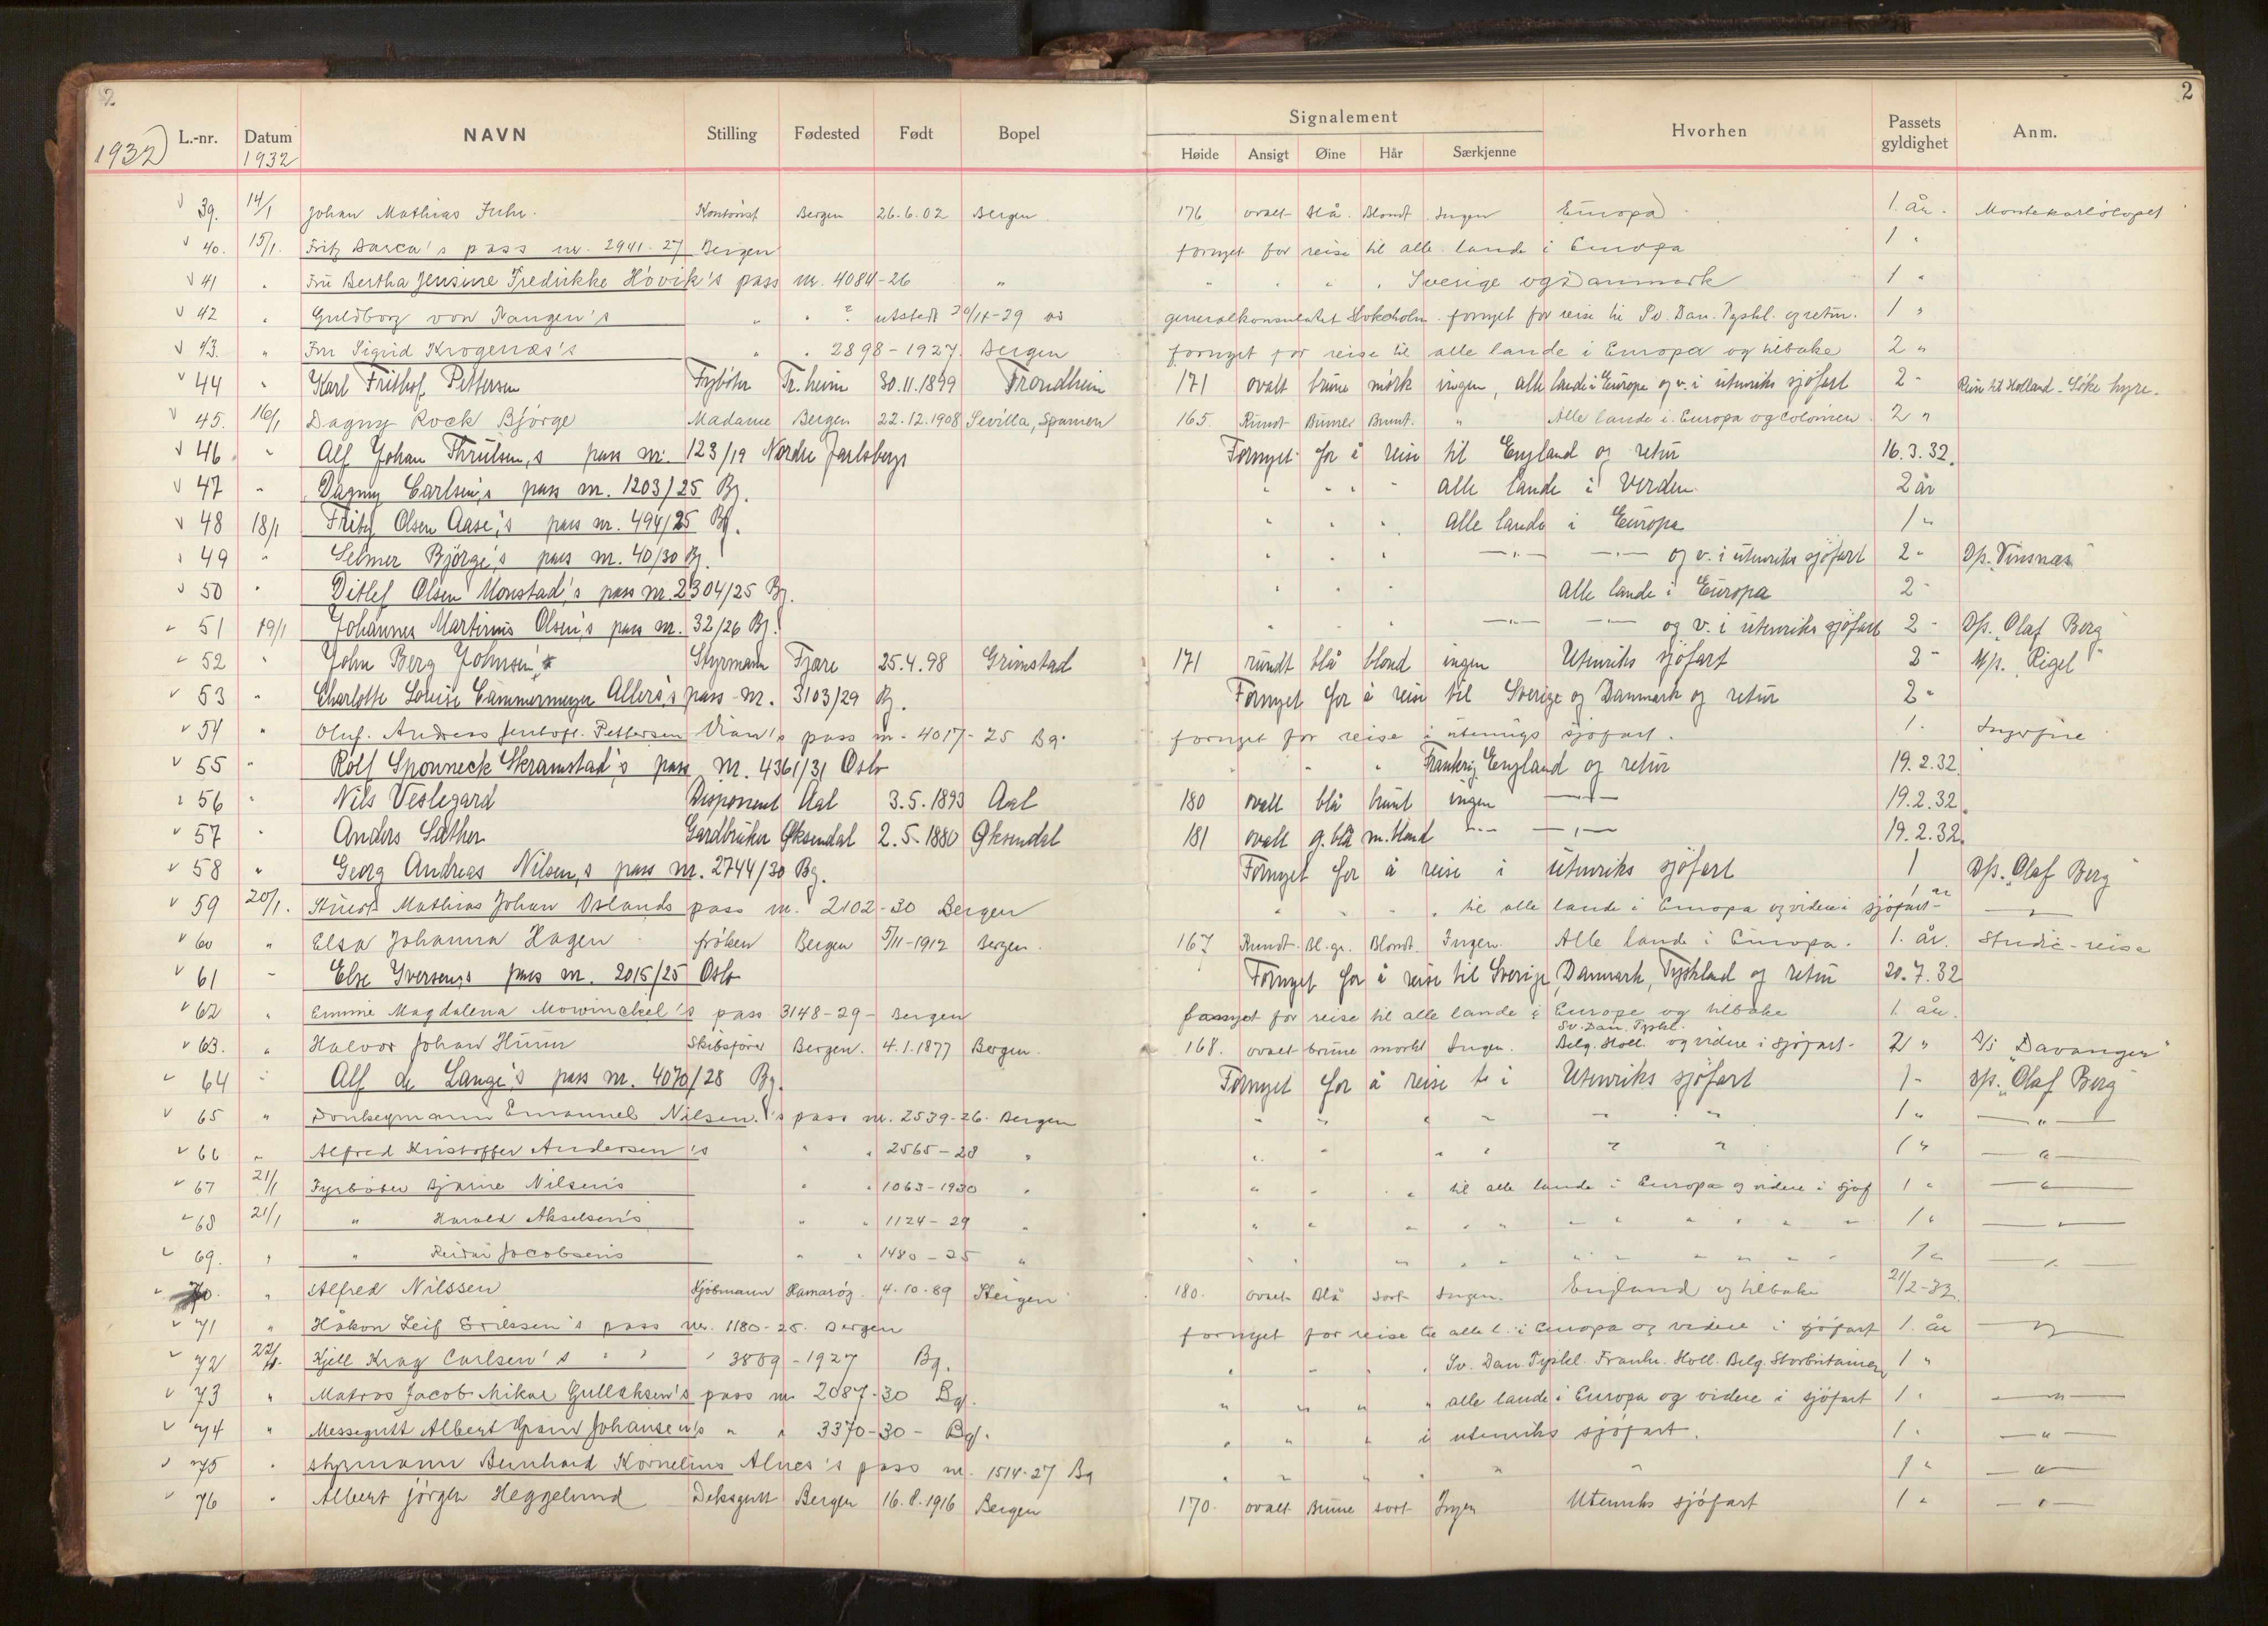 2. 2
1932 L.-nr. Datum 1932 NAVN Stilling Fødested Født Bopel Signalement Hvorhen Passets gyldighet Anm.
Høide Ansigt Øine Hår Særkjenne
39. 14/1 Johan Mathias Kontorist Bergen 26.6.02 Bergen 176 ovalt Blå. Blondt. Ingen Europa 1. år. Montekarloløpet
40. 15/1. Fritz Barca's pass nr. 2941-27 Bergen fornyet for reise til alle lande i Europa 1 "
41 " Fru Bertha Jensine Fredrikke Hovik's pass nr. 4084-26 " " " " " Sverige og Danmark 1 "
42 " Guldborg von " " ? utstedt 20/11-29 av generalkonsulatet Stokholm. fornyet for reise til Sv. Dan. Tyskl. og retur. 1 "
43. " Fru Sigrid Krogenæs's " " 2898-1927. Bergen fornyet for reise til alle lande i Europa og tilbake 2 "
44 " Karl Frithof Pettersen Fyrbøter Tr.heim 30.11.1899 Trondheim 171 ovalt brune mørk ingen, alle lande i Europa og v. i utenriks sjøfart 2 " Reise til Holland - Søke hyre.
45. 16/1 Dagny Rock Bjørge Madame Bergen 22.12.1908 Sevilla, Spanien 165. Rundt Brune Brunt. " Alle lande i Europa og Colonien. 2 "
46 " Alf Johan Thrulsen,s pass nr. 123/19 Nordre Jarlsberg Fornyet for å reise til England og retur 16.3.32.
47 " Dagny Carlsen,s pass nr. 1203/25 Bg. " " " " alle lande i Verden. 2 år
48 18/1 Fritz Olsen Aase,s pass nr. 494/25 Bg. " " " " Alle lande i Europa 1 "
49 " Selmer Bjørge,s pass nr. 40/30 Bg. " " " —"— —"— og v. i utenriks sjøfart 2 " D/s. "Vinsnes"
50 " Ditlef Olsen Monstad,s pass nr. 2304/25 Bg. " " " Alle lande i Europa 2 "
51 19/1 Johannes Martinus Olsen,s pass nr. 32/26 Bg. " " " —"— —"— og v. i utenriks sjøfart 2 " D/s. "Olaf Berg"
52 " John Berg Johnsen Styrmann Fjære 25.4.98 Grimstad 171 rundt blå blond ingen Utenriks sjøfart 2 " M/s. "Rigel"
53 " Charlotte Louise Cammermeyer Allers,s pass nr. 3103/29 Bg. Fornyet for å reise til Sverige og Danmark og retur 2 "
54 " Oluf. Andreas Jentoft. Pettersen pass nr. 4017-25 Bg. fornyet for reise i utenriks sjøfart. 1 "
55 " Rolf Sponneck Skramstad's pass nr. 4361/31 Oslo " " " Frankrig England og retur 19.2.32.
56 " Nils Veslegard Disponent Aal 3.5.1893 Aal 180 ovalt blå brunt ingen —"— 19.2.32.
57 " Anders Sæther Gardbruker Øksendal 2.5.1880 Øksendal 181 ovalt g.blå m.blond —"— —"— 19.2.32.
58 " Georg Andreas Nilsen,s pass nr. 2744/30 Bg. Fornyet for å reise i utenriks sjøfart 1 D/s. "Olaf Berg"
59 20/1. Mathias Johan Oslands pass nr. 2102-30 Bergen " " " " til alle lande i Europa og videre i sjøfart 1 år —"—
60 " Elsa Johanna Hagen frøken Bergen 5/11-1912 Bergen. 167 Rundt. Bl.gr. Blondt. Ingen. Alle lande i Europa. 1. år. Studie-reise
61 " Else Iversen,s pass nr. 2015/25 Oslo Fornyet for å reise til Sverige, Danmark, Tyskland og retur 20.7.32
62 " Emmie Magdalena Mowinckel's pass 3148-29- Bergen fornyet for reise til alle lande i Europe og tilbake 1. år.
63. " Halvor Johan Huun Skibsfører Bergen. 4.1.1877 Bergen. 168. ovalt brune mørkt Ingen. Sv. Dan. Tyskl. Belg. Holl. og videre i sjøfart. 2 " D/s "Davanger"
64 " Alf de Lange's pass nr. 4070/28 Bg. Fornyet for å reise i Utenriks sjøfart 1 " D/s. "Olaf Berg"
65 " Donkeymann Emanuel Nilsen.'s pass nr. 2539-26. Bergen " " " " " " 1 " —"—
66 " Alfred Kristoffer Andersen's " " 2565-28 " " " " " " " 1 " —"—
67 21/1 Fyrbøter Bjarne Nilsen's " " 1063-1930 " " " " " til alle lande i Europa og videre i sjøf 1 " —"—
68 21/1 " Harald Akselsen's " " 1124-29 " " " " " " " " " " " " 1 " —"—
69. " " Reidar Jacobsen's " " 1480-25 " " " " " " " " " " " " 1 " —"—
70. " Alfred Nilssen Kjøbmann Hamarøy. 4.10.89 Steigen 180. ovalt Blå sort Ingen. England og tilbake 21/2-32.
71 " Håkon Leif Erikssen's pass nr. 1180-25. Bergen fornyet for reise til alle l. i Europa og videre i sjøfart 1. år —"—
72 22/1. Kjell Krag Carlsen's " " " 3889-1927 Bg. " " " " Sv. Dan. Tyskl. Frankr. Holl. Belg. Storbritanien 1 "
73 " Matros Jacob Mikal Gullaksen's pass nr. 2087-30 Bg. " " " " alle lande i Europa og videre i sjøfart 1 " —"—
74 " Messegutt Albert Johansen's " " 3370-30- Bg. " " " i utenriks sjøfart. 1 " —"—
75 " styrmann Bernhard Kornelius Alnes's pass nr. 1514-27 Bg " " " " " " 1 " —"—
76 " Albert Jørgen Heggelund Deksgutt Bergen 16.8.1916 Bergen 170. ovalt Brune sort Ingen Utenriks sjøfart 1 " —"—